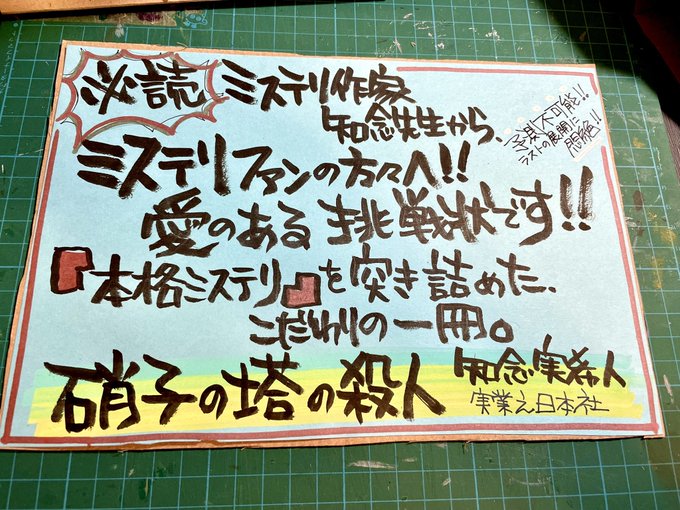 必読
ミステリ作家
知念先生から、
予測不可能!!
ラストの展開に
悶絶!!
ミステリファンの方々へ!!
愛のある挑戦状です!!
『本格ミステリ』を突き詰めた、
こだわりの一冊。
硝子の塔の殺人
知念実希人
実業之日本社